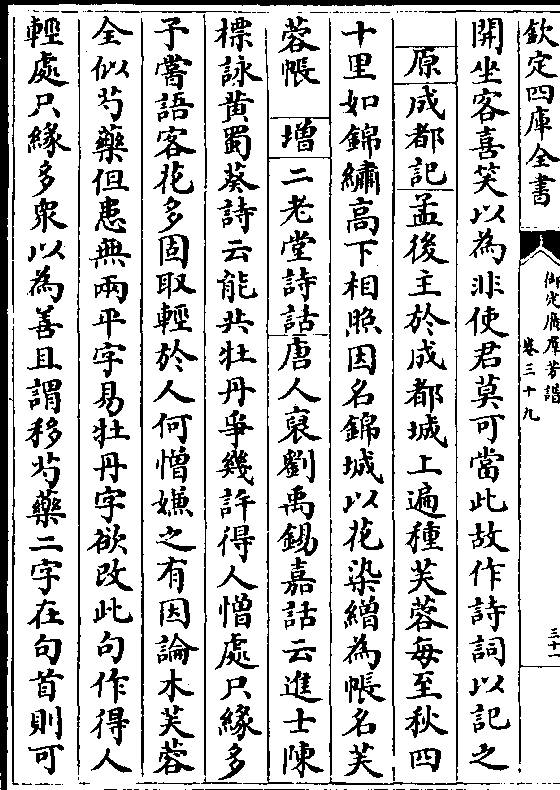 欽定四庫全書
御定廣群芳譜
卷三十九
三十一
開坐客喜笑以為非使君莫可當此故作詩詞以記之
原 成都記 孟後主於成都城上遍種芙蓉每至秋四
十里如錦繡高下相照因名錦城以花染繒為帳名芙
蓉帳 增 二老堂詩話 唐人裒劉禹錫嘉話云進士陳
標詠黃蜀葵詩云能共牡丹爭幾許得人憎處只緣多
予嘗語客花多固取輕於人何憎嫌之有因論木芙蓉
全似芍藥但患無兩平字易牡丹字欲改此句作得人
輕處只緣多眾以為善且謂移芍藥二字在句首則可